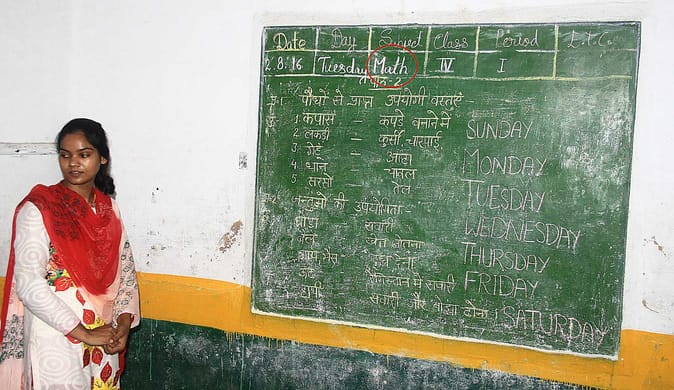 Date Day Subject Class Period E.T.C.
2.8.16 Tuesday Math IV I
पाठ-2
प्र.1. पौधों से प्राप्त उपयोगी वस्तुएं-
1. कपास - कपड़े बनाने में
2. लकड़ी - कुर्सी, चारपाई
3. गेहूँ - आटा
4. धान - चावल
5. सरसों - तेल
की उपयोगिता-
घोड़ा - सवारी
बैल - खेत जोतना
गाय भैंस - दूध देना
ऊँट - रेगिस्तान में सवारी
हाथी - सवारी और बोझा ढोना।
SUNDAY
MONDAY
TUESDAY
WEDNESDAY
THURSDAY
FRIDAY
SATURDAY